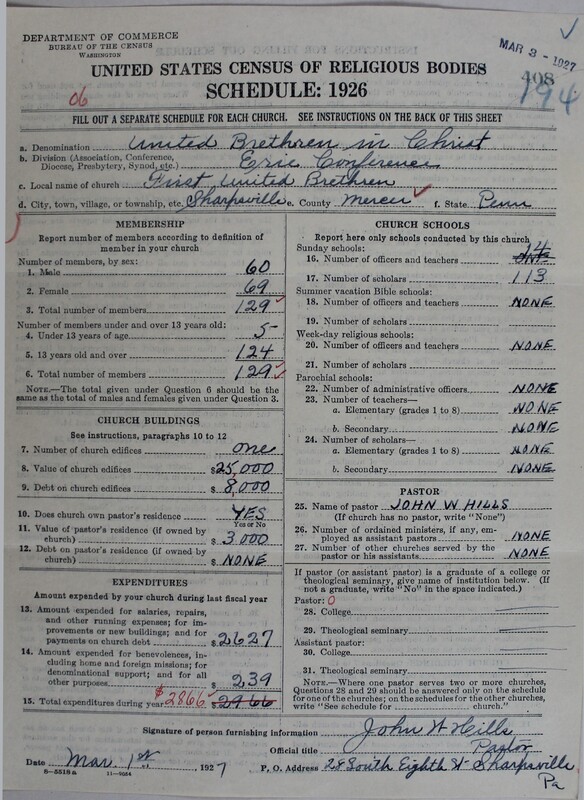 DEPARTMENT OF COMMERCE
BUREAU OF THE CENSUS
WASHINGTON
MAR 3 - 1927
408
194
UNITED STATES CENSUS OF RELIGIOUS BODIES
06
SCHEDULE: 1926
FILL OUT A SEPARATE SCHEDULE FOR EACH CHURCH. SEE INSTRUCTIONS ON THE BACK OF THIS SHEET
a. Denomination United Brethren in Christ
b. Division (Association, Conference, Diocese, Presbytery, Synod, etc.) Erie Conference
c. Local name of church First United Brethren
d. City, town, village, or township, etc. Sharpsville e. County Mercer f. State Penn
MEMBERSHIP
Report number of members according to definition of
member in your church
Number of members, by sex:
1. Male 60
2. Female 69
3. Total number of members 129
Number of members under and over 13 years old:
4. Under 13 years of age 5
5. 13 years old and over 124
6. Total number of members 129
NOTE.—The total given under Question 6 should be
same as the total of males and females given under Question 3.
CHURCH BUILDINGS
See instructions, paragraphs 10 to 12
7. Number of church edifices one
8. Value of church edifices $25,000
9. Debt on church edifices $8,000
10. Does church own pastor's residence YES
Yes or No
11. Value of pastor's residence (if owned by
church) $3,000
12. Debt on pastor's residence (if owned by
church) $NONE
EXPENDITURES
Amount expended by your church during last fiscal year
13. Amount expended for salaries, repairs,
and other running expenses; for im-
provements or new buildings; and for
payments on church debt $2627
14. Amount expended for benevolences, in-
cluding home and foreign missions; for
denominational support; and for all
other purposes $239
15. Total expenditures during year $2866 $2966
CHURCH SCHOOLS
Report here only schools conducted by this church
Sunday schools:
14
16. Number of officers and teachers
17. Number of scholars 113
Summer vacation Bible schools:
18. Number of officers and teachers NONE
19. Number of scholars
Week-day religious schools:
20. Number of officers and teachers NONE
21. Number of scholars
Parochial schools:
22. Number of administrative officers NONE
23. Number of teachers—
a. Elementary (grades 1 to 8) NONE
b. Secondary NONE
24. Number of scholars—
a. Elementary (grades 1 to 8) NONE
b. Secondary NONE
PASTOR
25. Name of pastor JOHN W HILLS
(If church has no pastor, write "None")
26. Number of ordained ministers, if any, em-
ployed as assistant pastors NONE
27. Number of other churches served by the
pastor or his assistants NONE
If pastor (or assistant pastor) is a graduate of a college or
theological seminary, give name of institution below. (If
not a graduate, write "No" in the space indicated.)
Pastor: 0
28. College
29. Theological seminary
Assistant pastor:
30. College
31. Theological seminary
NOTE.—Where one pastor serves two or more churches,
Questions 28 and 29 should be answered only on the schedule
for one of the churches; on the schedules for the other churches,
write "See schedule for church."
Signature of person furnishing information John W Hills
Official title Pastor
Date Mar. 1st 1927 P. O. Address 28 South Eighth St Sharpsville
Pa
8—5518a 11—9054